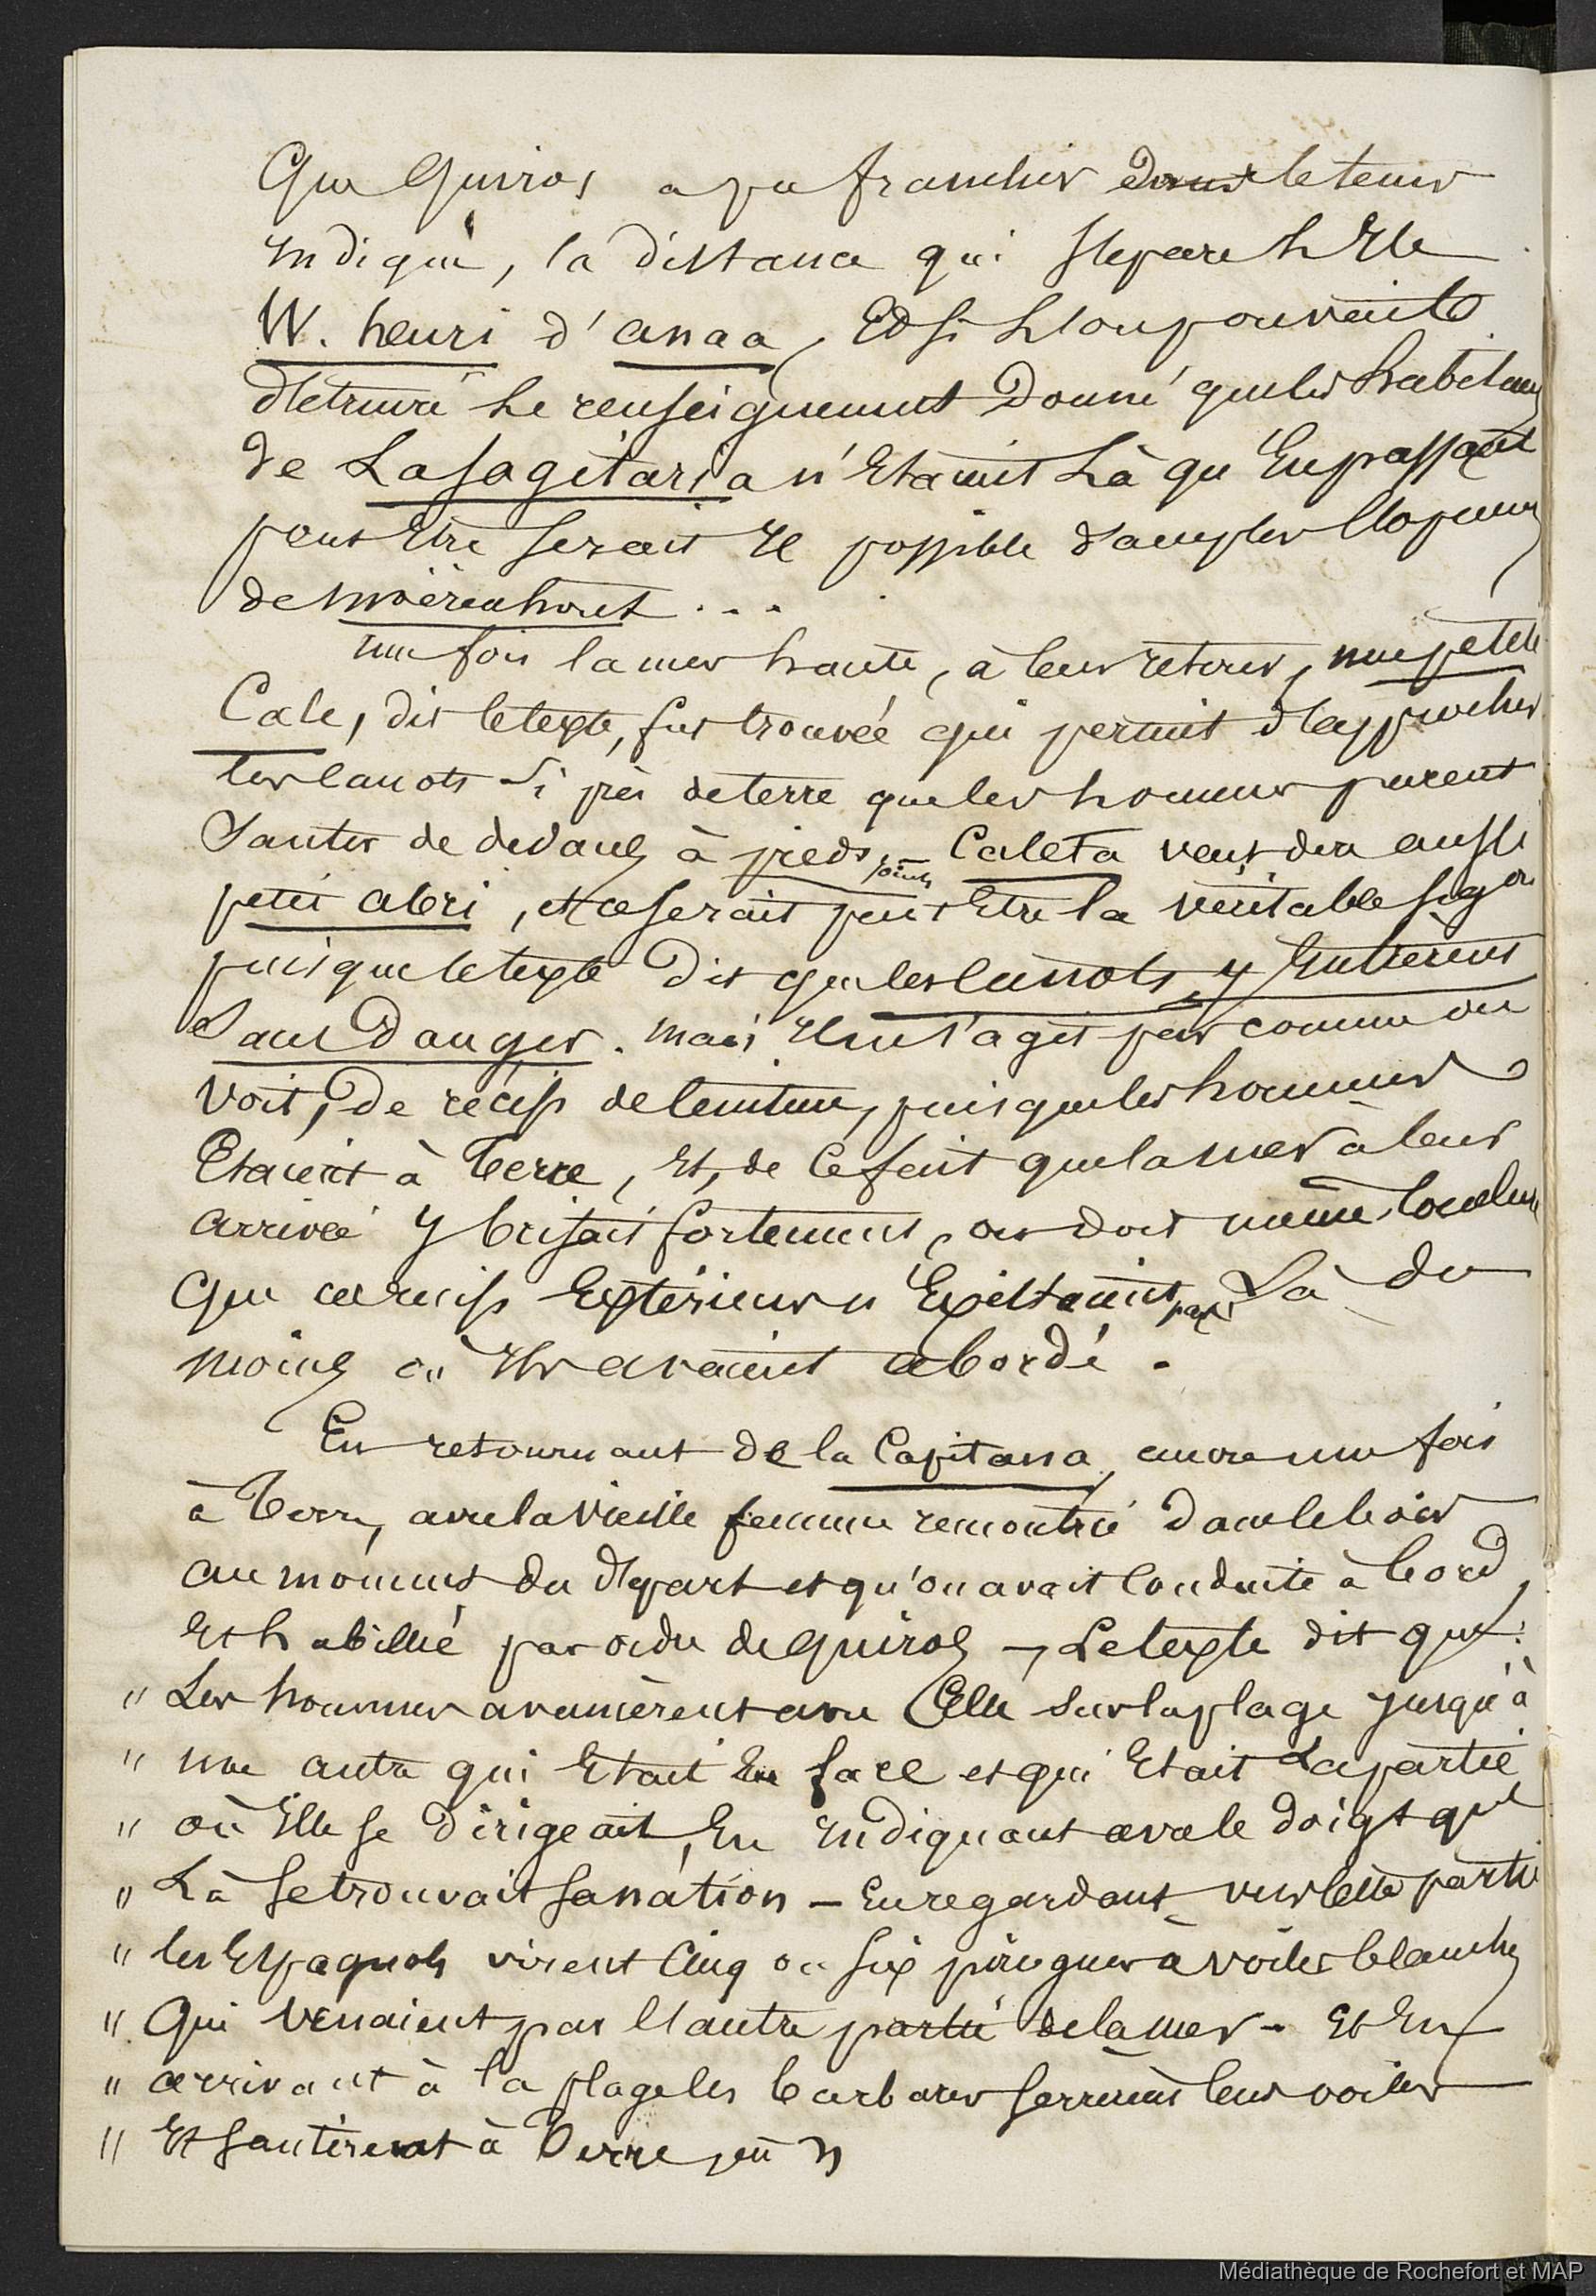 que Quiros a pu franchir dans le tems
indiqué, la distance qui separe l'Ile
W. henri d'anaa, Et si l'on pouvait
détruire le renseignement donné que les habitans
de La Sagitaria n'Etaient Là qu'En passant
peut Etre serait Il possible d'accepter l'opinion
de Moërenhout...
une fois la mer haute, à leur retour, une petite
Cale, dit le texte, fut trouvée qui permit d'approcher
les canots si près de terre que les hommes purent
Sauter de dedans à pieds joints – Caleta veut dire aussi
petit abri, et ce serait peut Etre la véritable sign
puisque le texte dit que les canots y Entrèrent
Sans Danger. mais Il ne s'agit pas comme on
voit, de récifs de ceinture, puisque les hommes
Etaient à Terre, Et, de ce fait que la mer à leur
arrivée y brisait fortement, on doit même conclure
que ces récifs Extérieurs n'Existaient pas, Là du
moins où Ils avaient abordé.
En retournant de la Capitana, encore une fois
à Terre, avec la vieille femme rencontrée dans le bois
au moment du départ et qu'on avait conduite à bord,
Et habillée par ordre de Quiros –, Le texte dit que:
" Les hommes avancèrent avec Elle sur la plage jusqu'à
" une autre qui Etait En face et qui Etait La partie
" où Elle se dirigeait, En Indiquant avec le doigt que
" Là se trouvait sa nation – En regardant vers cette partie
" les Espagnols virent cinq ou six pirogues à voiles blanches
" Qui venaient par l'autre partie de la mer – Et En
" arrivant à la plage les barbares serrèrent leurs voiles
" Et sautèrent à Terre, où "
Médiathèque de Rochefort et MAP